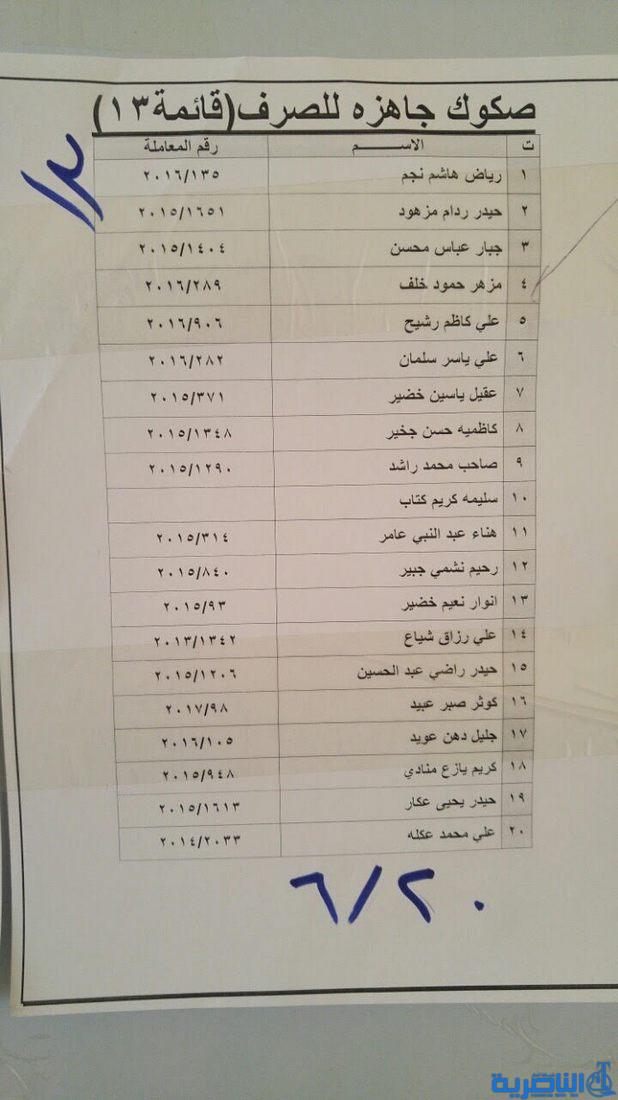 صكوك جاهزه للصرف (قائمة ١٣)
١٣
ت الاســـــم رقم المعاملة
١ رياض هاشم نجم ٢٠١٦/١٣٥
٢ حيدر ردام مزهود ٢٠١٥/١٦٥١
٣ جبار عباس محسن ٢٠١٥/١٤٠٤
٤ مزهر حمود خلف ٢٠١٦/٢٨٩
٥ علي كاظم رشيح ٢٠١٦/٩٠٦
٦ علي ياسر سلمان ٢٠١٦/٢٨٢
٧ عقيل ياسين خضير ٢٠١٥/٣٧١
٨ كاظميه حسن جخير ٢٠١٥/١٣٤٨
٩ صاحب محمد راشد ٢٠١٥/١٢٩٠
١٠ سليمه كريم كتاب
١١ هناء عبد النبي عامر ٢٠١٥/٣١٤
١٢ رحيم نشمي جبير ٢٠١٥/٨٤٠
١٣ انوار نعيم خضير ٢٠١٥/٩٣
١٤ علي رزاق شياع ٢٠١٣/١٣٤٢
١٥ حيدر راضي عبد الحسين ٢٠١٥/١٢٠٦
١٦ كوثر صبر عبيد ٢٠١٧/٩٨
١٧ جليل دهن عويد ٢٠١٦/١٠٥
١٨ كريم يازع منادي ٢٠١٥/٩٤٨
١٩ حيدر يحيى عكار ٢٠١٥/١٦١٣
٢٠ علي محمد عكله ٢٠١٤/٢٠٣٣
٦/٢٠
الناصرية